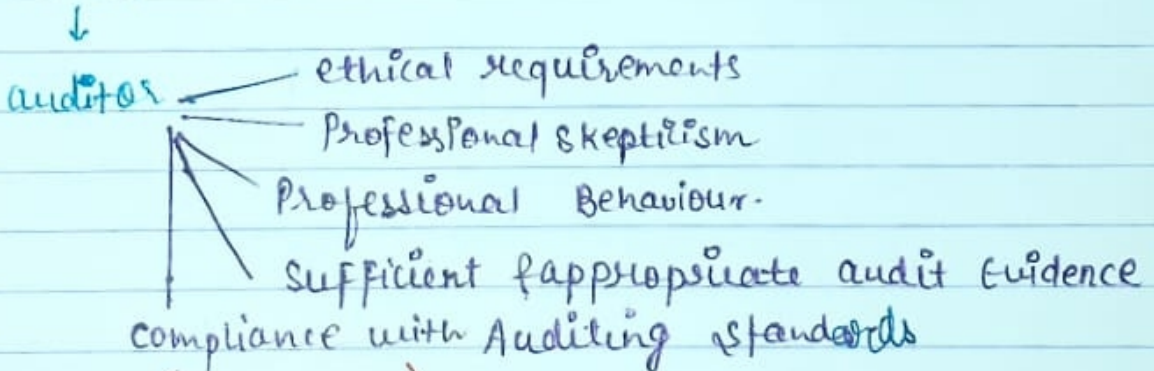 auditor
ethical requirements
Professional Skepticism
Professional Behaviour.
Sufficient & appropriate audit Evidence
compliance with Auditing standards